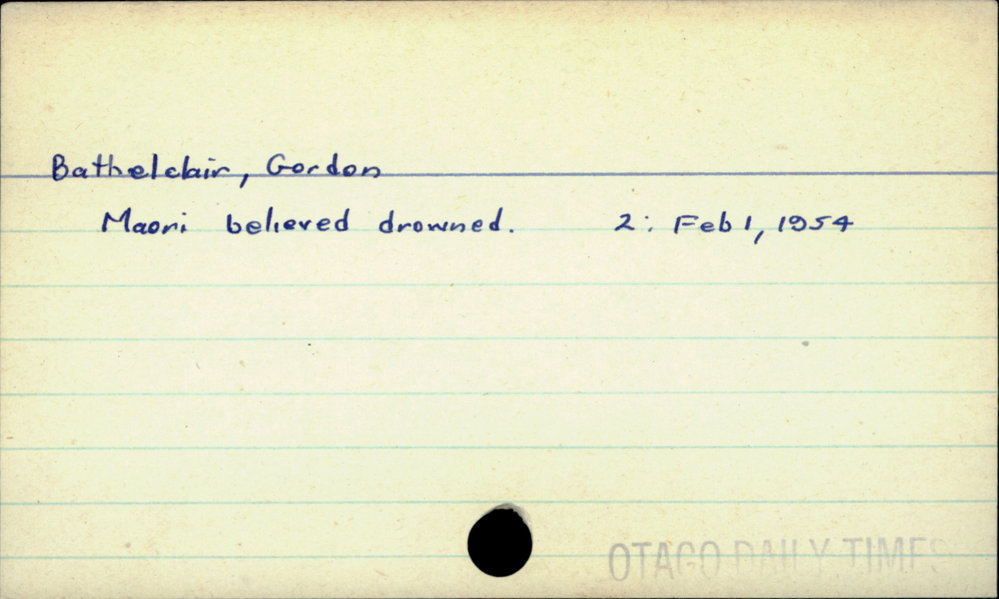 Bathelclair, Gordon
Maori believed drowned. 2: Feb 1, 1954
OTAGO DAILY TIMES